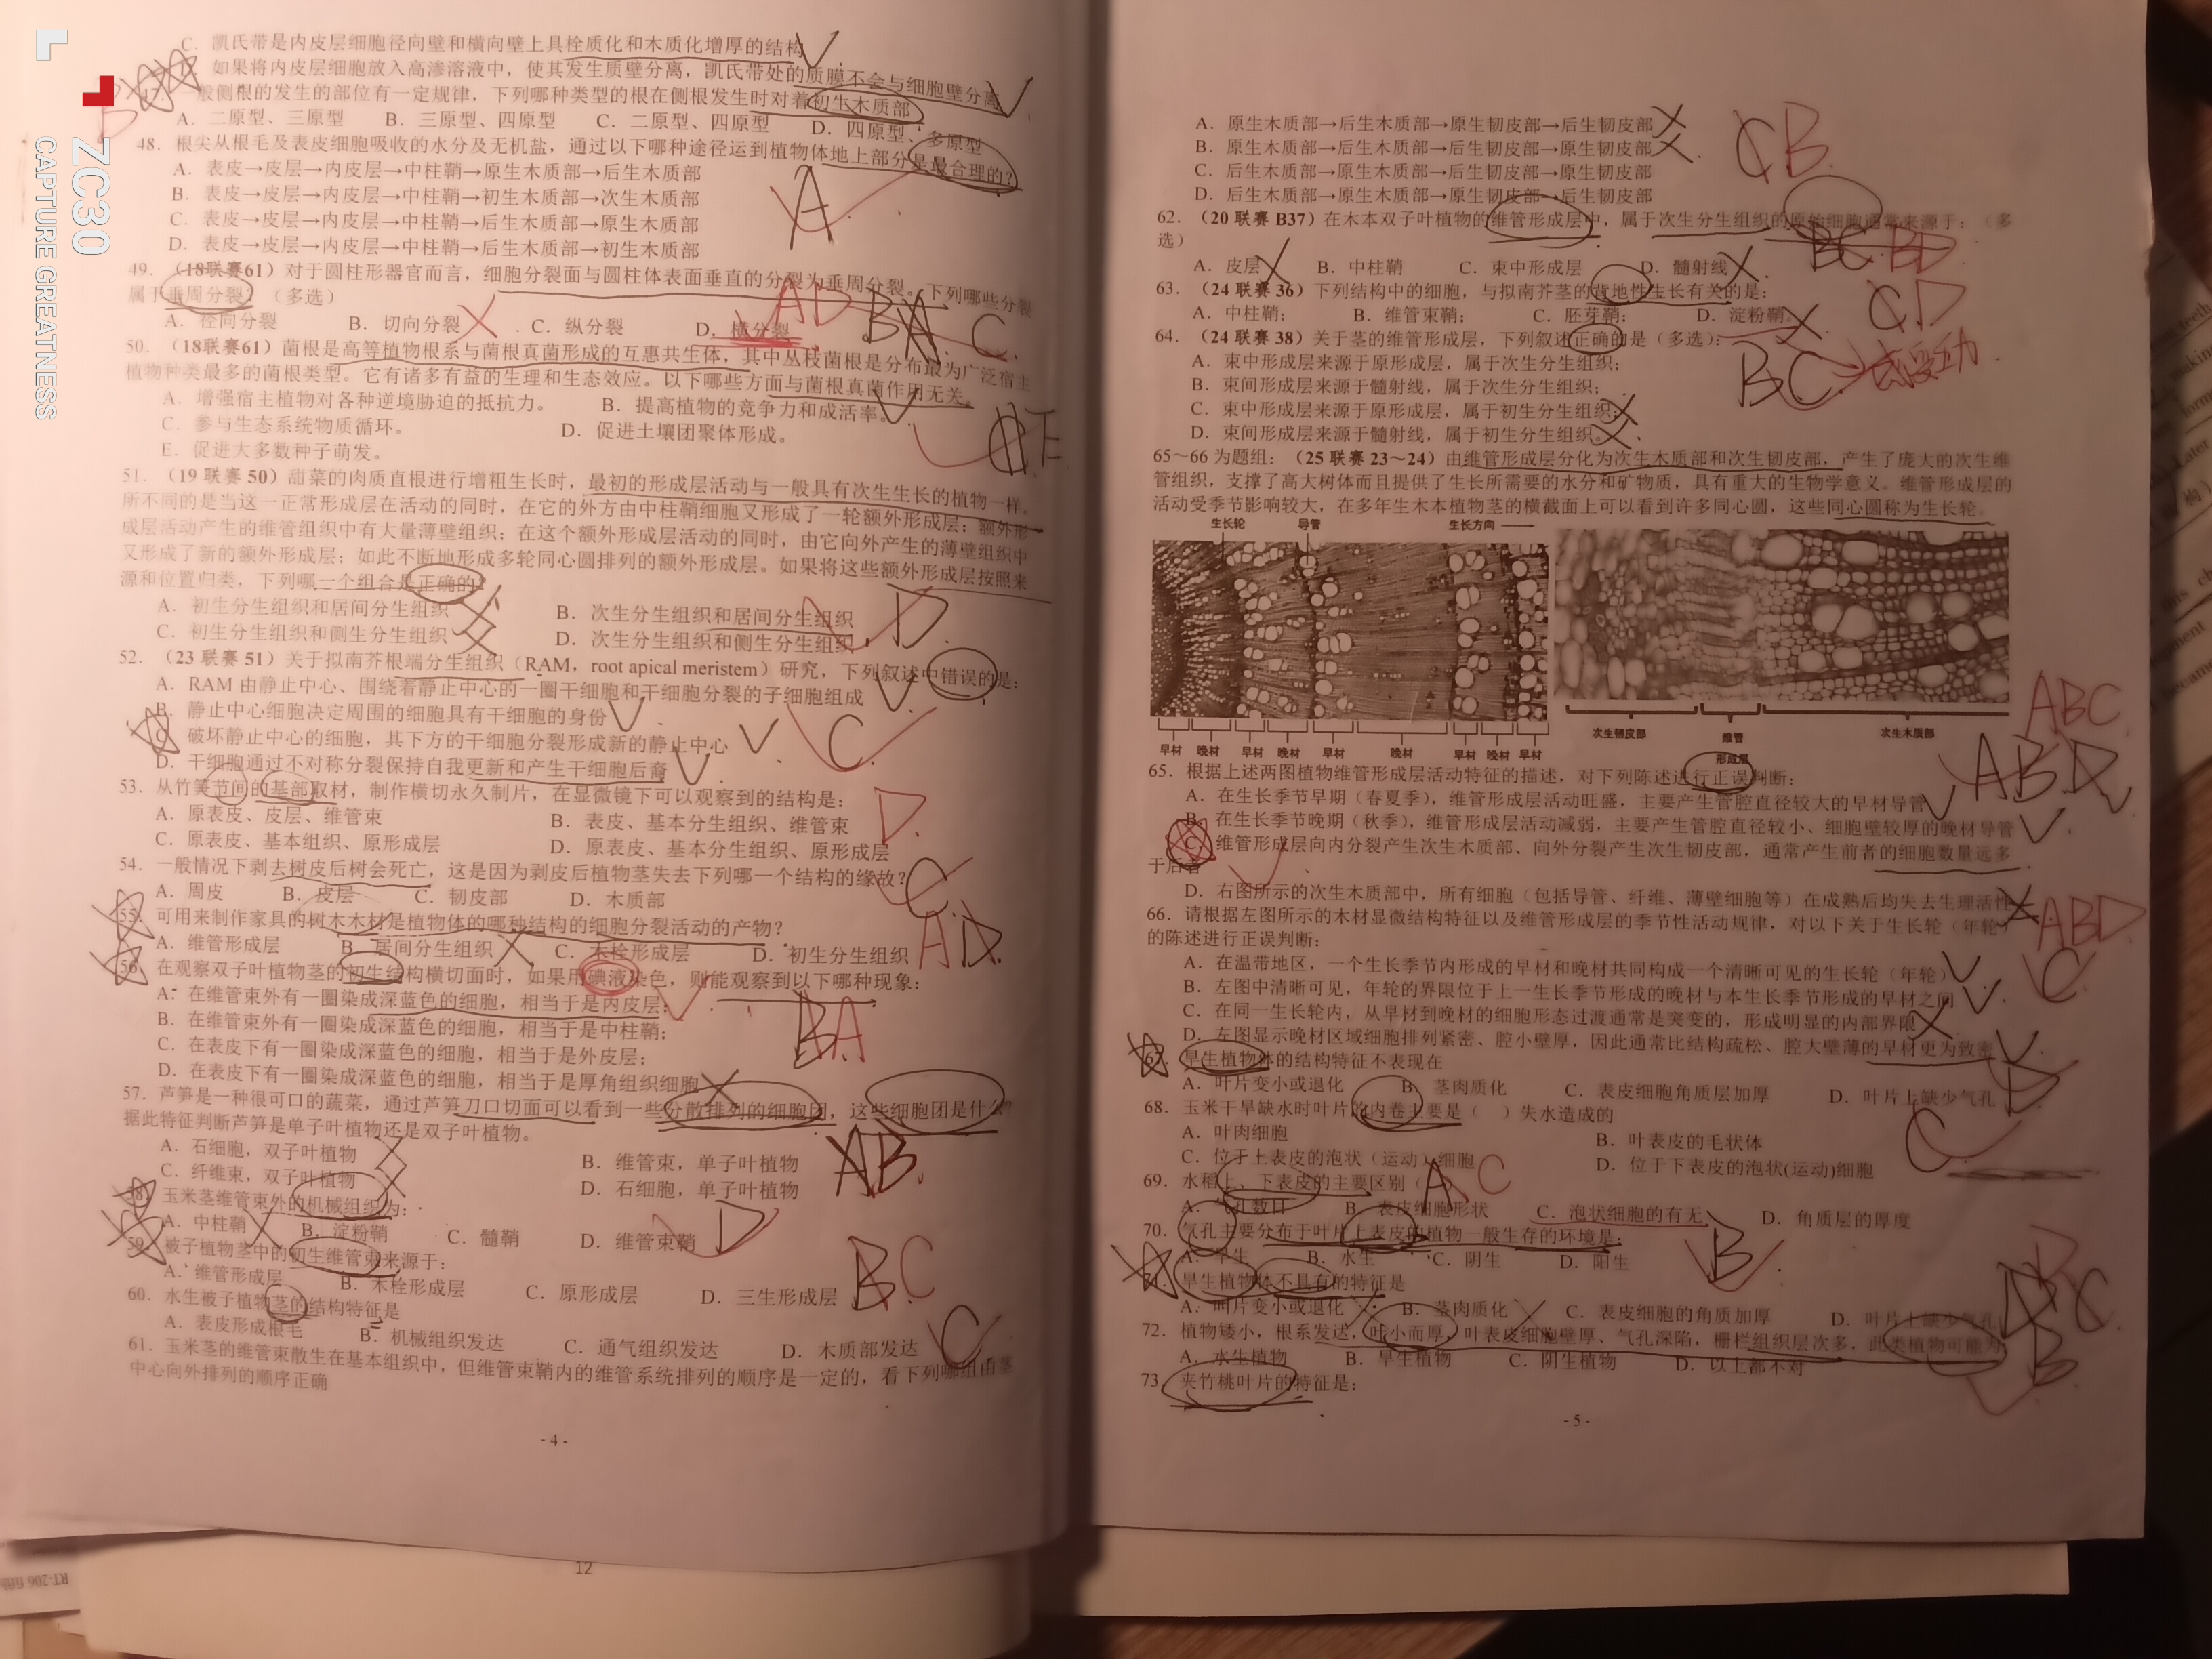 C．凯氏带是内皮层细胞径向壁和横向壁上具栓质化和木质化增厚的结构
如果将内皮层细胞放入高渗溶液中，使其发生质壁分离，凯氏带处的质膜不会与细胞壁分离
47．一般侧根的发生的部位有一定规律，下列哪种类型的根在侧根发生时对着初生木质部
A．二原型、三原型 B．三原型、四原型 C．二原型、四原型 D．四原型、多原型
48．根尖从根毛及表皮细胞吸收的水分及无机盐，通过以下哪种途径运到植物体地上部分是最合理的?
A．表皮→皮层→内皮层→中柱鞘→原生木质部→后生木质部
B．表皮→皮层→内皮层→中柱鞘→初生木质部→次生木质部
C．表皮→皮层→内皮层→中柱鞘→后生木质部→原生木质部
D．表皮→皮层→内皮层→中柱鞘→后生木质部→初生木质部
A
49．（18联赛61）对于圆柱形器官而言，细胞分裂面与圆柱体表面垂直的分裂为垂周分裂。下列哪些分裂
属于垂周分裂?（多选）
A．径向分裂 B．切向分裂 C．纵分裂 D．横分裂
AD
50．（18联赛61）菌根是高等植物根系与菌根真菌形成的互惠共生体，其中丛枝菌根是分布最为广泛宿主
植物种类最多的菌根类型。它有诸多有益的生理和生态效应。以下哪些方面与菌根真菌作用无关。
A．增强宿主植物对各种逆境胁迫的抵抗力。 B．提高植物的竞争力和成活率。
C．参与生态系统物质循环。 D．促进土壤团聚体形成。
E．促进大多数种子萌发。
E
51．（19 联赛 50）甜菜的肉质直根进行增粗生长时，最初的形成层活动与一般具有次生生长的植物一样。
所不同的是当这一正常形成层在活动的同时，在它的外方由中柱鞘细胞又形成了一轮额外形成层；额外形
成层活动产生的维管组织中有大量薄壁组织；在这个额外形成层活动的同时，由它向外产生的薄壁组织中
又形成了新的额外形成层；如此不断地形成多轮同心圆排列的额外形成层。如果将这些额外形成层按照来
源和位置归类，下列哪一个组合是正确的?
A．初生分生组织和居间分生组织 B．次生分生组织和居间分生组织
C．初生分生组织和侧生分生组织 D．次生分生组织和侧生分生组织
D
52．（23 联赛 51）关于拟南芥根端分生组织（RAM，root apical meristem）研究，下列叙述中错误的是：
A．RAM 由静止中心、围绕着静止中心的一圈干细胞和干细胞分裂的子细胞组成
B．静止中心细胞决定周围的细胞具有干细胞的身份
C．破坏静止中心的细胞，其下方的干细胞分裂形成新的静止中心
D．干细胞通过不对称分裂保持自我更新和产生干细胞后裔
C
53．从竹笋节间的基部取材，制作横切永久制片，在显微镜下可以观察到的结构是：
A．原表皮、皮层、维管束 B．表皮、基本分生组织、维管束
C．原表皮、基本组织、原形成层 D．原表皮、基本分生组织、原形成层
D
54．一般情况下剥去树皮后树会死亡，这是因为剥皮后植物茎失去下列哪一个结构的缘故?
A．周皮 B．皮层 C．韧皮部 D．木质部
C
55．可用来制作家具的树木木材是植物体的哪种结构的细胞分裂活动的产物?
A．维管形成层 B．居间分生组织 C．木栓形成层 D．初生分生组织
A D
56．在观察双子叶植物茎的初生结构横切面时，如果用碘液染色，则能观察到以下哪种现象：
A．在维管束外有一圈染成深蓝色的细胞，相当于是内皮层；
B．在维管束外有一圈染成深蓝色的细胞，相当于是中柱鞘；
C．在表皮下有一圈染成深蓝色的细胞，相当于是外皮层；
D．在表皮下有一圈染成深蓝色的细胞，相当于是厚角组织细胞
BA
57．芦笋是一种很可口的蔬菜，通过芦笋刀口切面可以看到一些分散排列的细胞团，这些细胞团是什么?
据此特征判断芦笋是单子叶植物还是双子叶植物。
A．石细胞，双子叶植物 B．维管束，单子叶植物
C．纤维束，双子叶植物 D．石细胞，单子叶植物
B
58．玉米茎维管束外的机械组织为：
A．中柱鞘 B．淀粉鞘 C．髓鞘 D．维管束鞘
D
59．被子植物茎中的初生维管束来源于：
A．维管形成层 B．木栓形成层 C．原形成层 D．三生形成层
BC
60．水生被子植物茎的结构特征是
A．表皮形成根毛 B．机械组织发达 C．通气组织发达 D．木质部发达
C
61．玉米茎的维管束散生在基本组织中，但维管束鞘内的维管系统排列的顺序是一定的，看下列哪组由茎
中心向外排列的顺序正确
- 4 -
12
A．原生木质部→后生木质部→原生韧皮部→后生韧皮部
B．原生木质部→后生木质部→后生韧皮部→原生韧皮部
C．后生木质部→原生木质部→后生韧皮部→原生韧皮部
D．后生木质部→原生木质部→原生韧皮部→后生韧皮部
CB
62．（20 联赛 B37）在木本双子叶植物的维管形成层中，属于次生分生组织的原始细胞通常来源于：（多
选）
A．皮层 B．中柱鞘 C．束中形成层 D．髓射线
BC BD
63．（24 联赛 36）下列结构中的细胞，与拟南芥茎的背地性生长有关的是：
A．中柱鞘； B．维管束鞘； C．胚芽鞘； D．淀粉鞘。
CD
64．（24 联赛 38）关于茎的维管形成层，下列叙述正确的是（多选）：
A．束中形成层来源于原形成层，属于次生分生组织；
B．束间形成层来源于髓射线，属于次生分生组织；
C．束中形成层来源于原形成层，属于初生分生组织；
D．束间形成层来源于髓射线，属于初生分生组织。
BC
65～66 为题组：（25 联赛 23～24）由维管形成层分化为次生木质部和次生韧皮部，产生了庞大的次生维
管组织，支撑了高大树体而且提供了生长所需要的水分和矿物质，具有重大的生物学意义。维管形成层的
活动受季节影响较大，在多年生木本植物茎的横截面上可以看到许多同心圆，这些同心圆称为生长轮。
生长轮 导管 生长方向
早材 晚材 早材 晚材 早材 晚材 早材 晚材 早材
次生韧皮部 维管形成层 次生木质部
65．根据上述两图植物维管形成层活动特征的描述，对下列陈述进行正误判断：
A．在生长季节早期（春夏季），维管形成层活动旺盛，主要产生管腔直径较大的早材导管
B．在生长季节晚期（秋季），维管形成层活动减弱，主要产生管腔直径较小、细胞壁较厚的晚材导管
C．维管形成层向内分裂产生次生木质部、向外分裂产生次生韧皮部，通常产生前者的细胞数量远多
于后者
D．右图所示的次生木质部中，所有细胞（包括导管、纤维、薄壁细胞等）在成熟后均失去生理活性
ABC
ABD
66．请根据左图所示的木材显微结构特征以及维管形成层的季节性活动规律，对以下关于生长轮（年轮）
的陈述进行正误判断：
A．在温带地区，一个生长季节内形成的早材和晚材共同构成一个清晰可见的生长轮（年轮）
B．左图中清晰可见，年轮的界限位于上一生长季节形成的晚材与本生长季节形成的早材之间
C．在同一生长轮内，从早材到晚材的细胞形态过渡通常是突变的，形成明显的内部界限
D．左图显示晚材区域细胞排列紧密、腔小壁厚，因此通常比结构疏松、腔大壁薄的早材更为致密
ABD
C
67．旱生植物体的结构特征不表现在
A．叶片变小或退化 B．茎肉质化 C．表皮细胞角质层加厚 D．叶片上缺少气孔
D
68．玉米干旱缺水时叶片的内卷主要是（ ）失水造成的
A．叶肉细胞 B．叶表皮的毛状体
C．位于上表皮的泡状（运动）细胞 D．位于下表皮的泡状(运动)细胞
C
69．水稻上、下表皮的主要区别（
A．气孔数目 B．表皮细胞形状 C．泡状细胞的有无 D．角质层的厚度
A C
70．气孔主要分布于叶片上表皮的植物一般生存的环境是：
A．旱生 B．水生 C．阴生 D．阳生
B
71．旱生植物体不具有的特征是
A．叶片变小或退化 B．茎肉质化 C．表皮细胞的角质加厚 D．叶片上缺少气孔
72．植物矮小，根系发达，叶小而厚，叶表皮细胞壁厚、气孔深陷，栅栏组织层次多，此类植物可能为
A．水生植物 B．旱生植物 C．阴生植物 D．以上都不对
B
73．夹竹桃叶片的特征是：
- 5 -
ZC30
CAPTURE GREATNESS